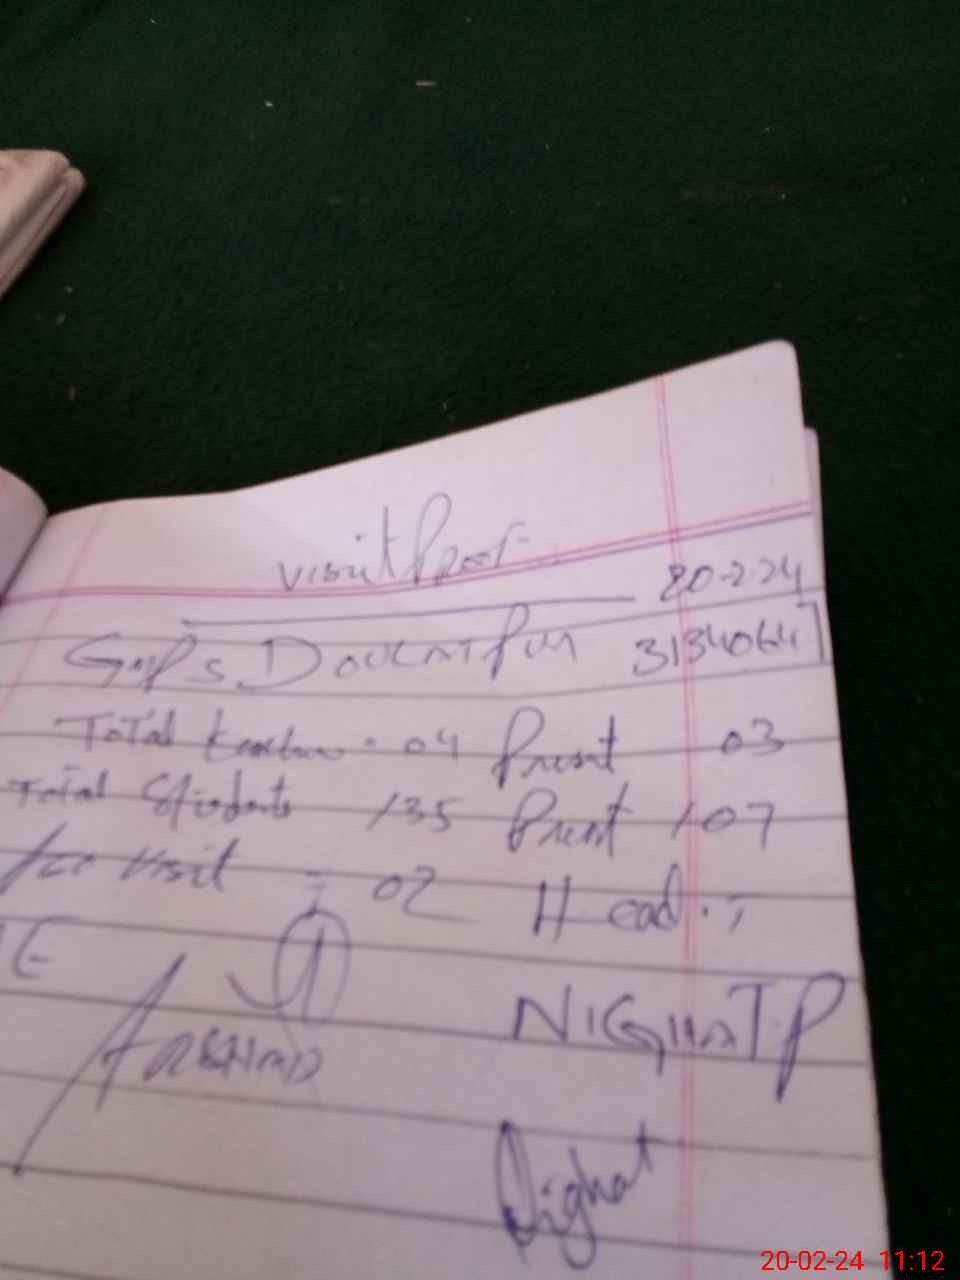 visit Proof
20-2-24
GGPS DOULATPUR 31340647
Total teacher - 04 Present 03
Total Students 135 Present 107
visit = 02 Head :-
ARSHAD
NIGHAT P
Nighat
20-02-24 11:12